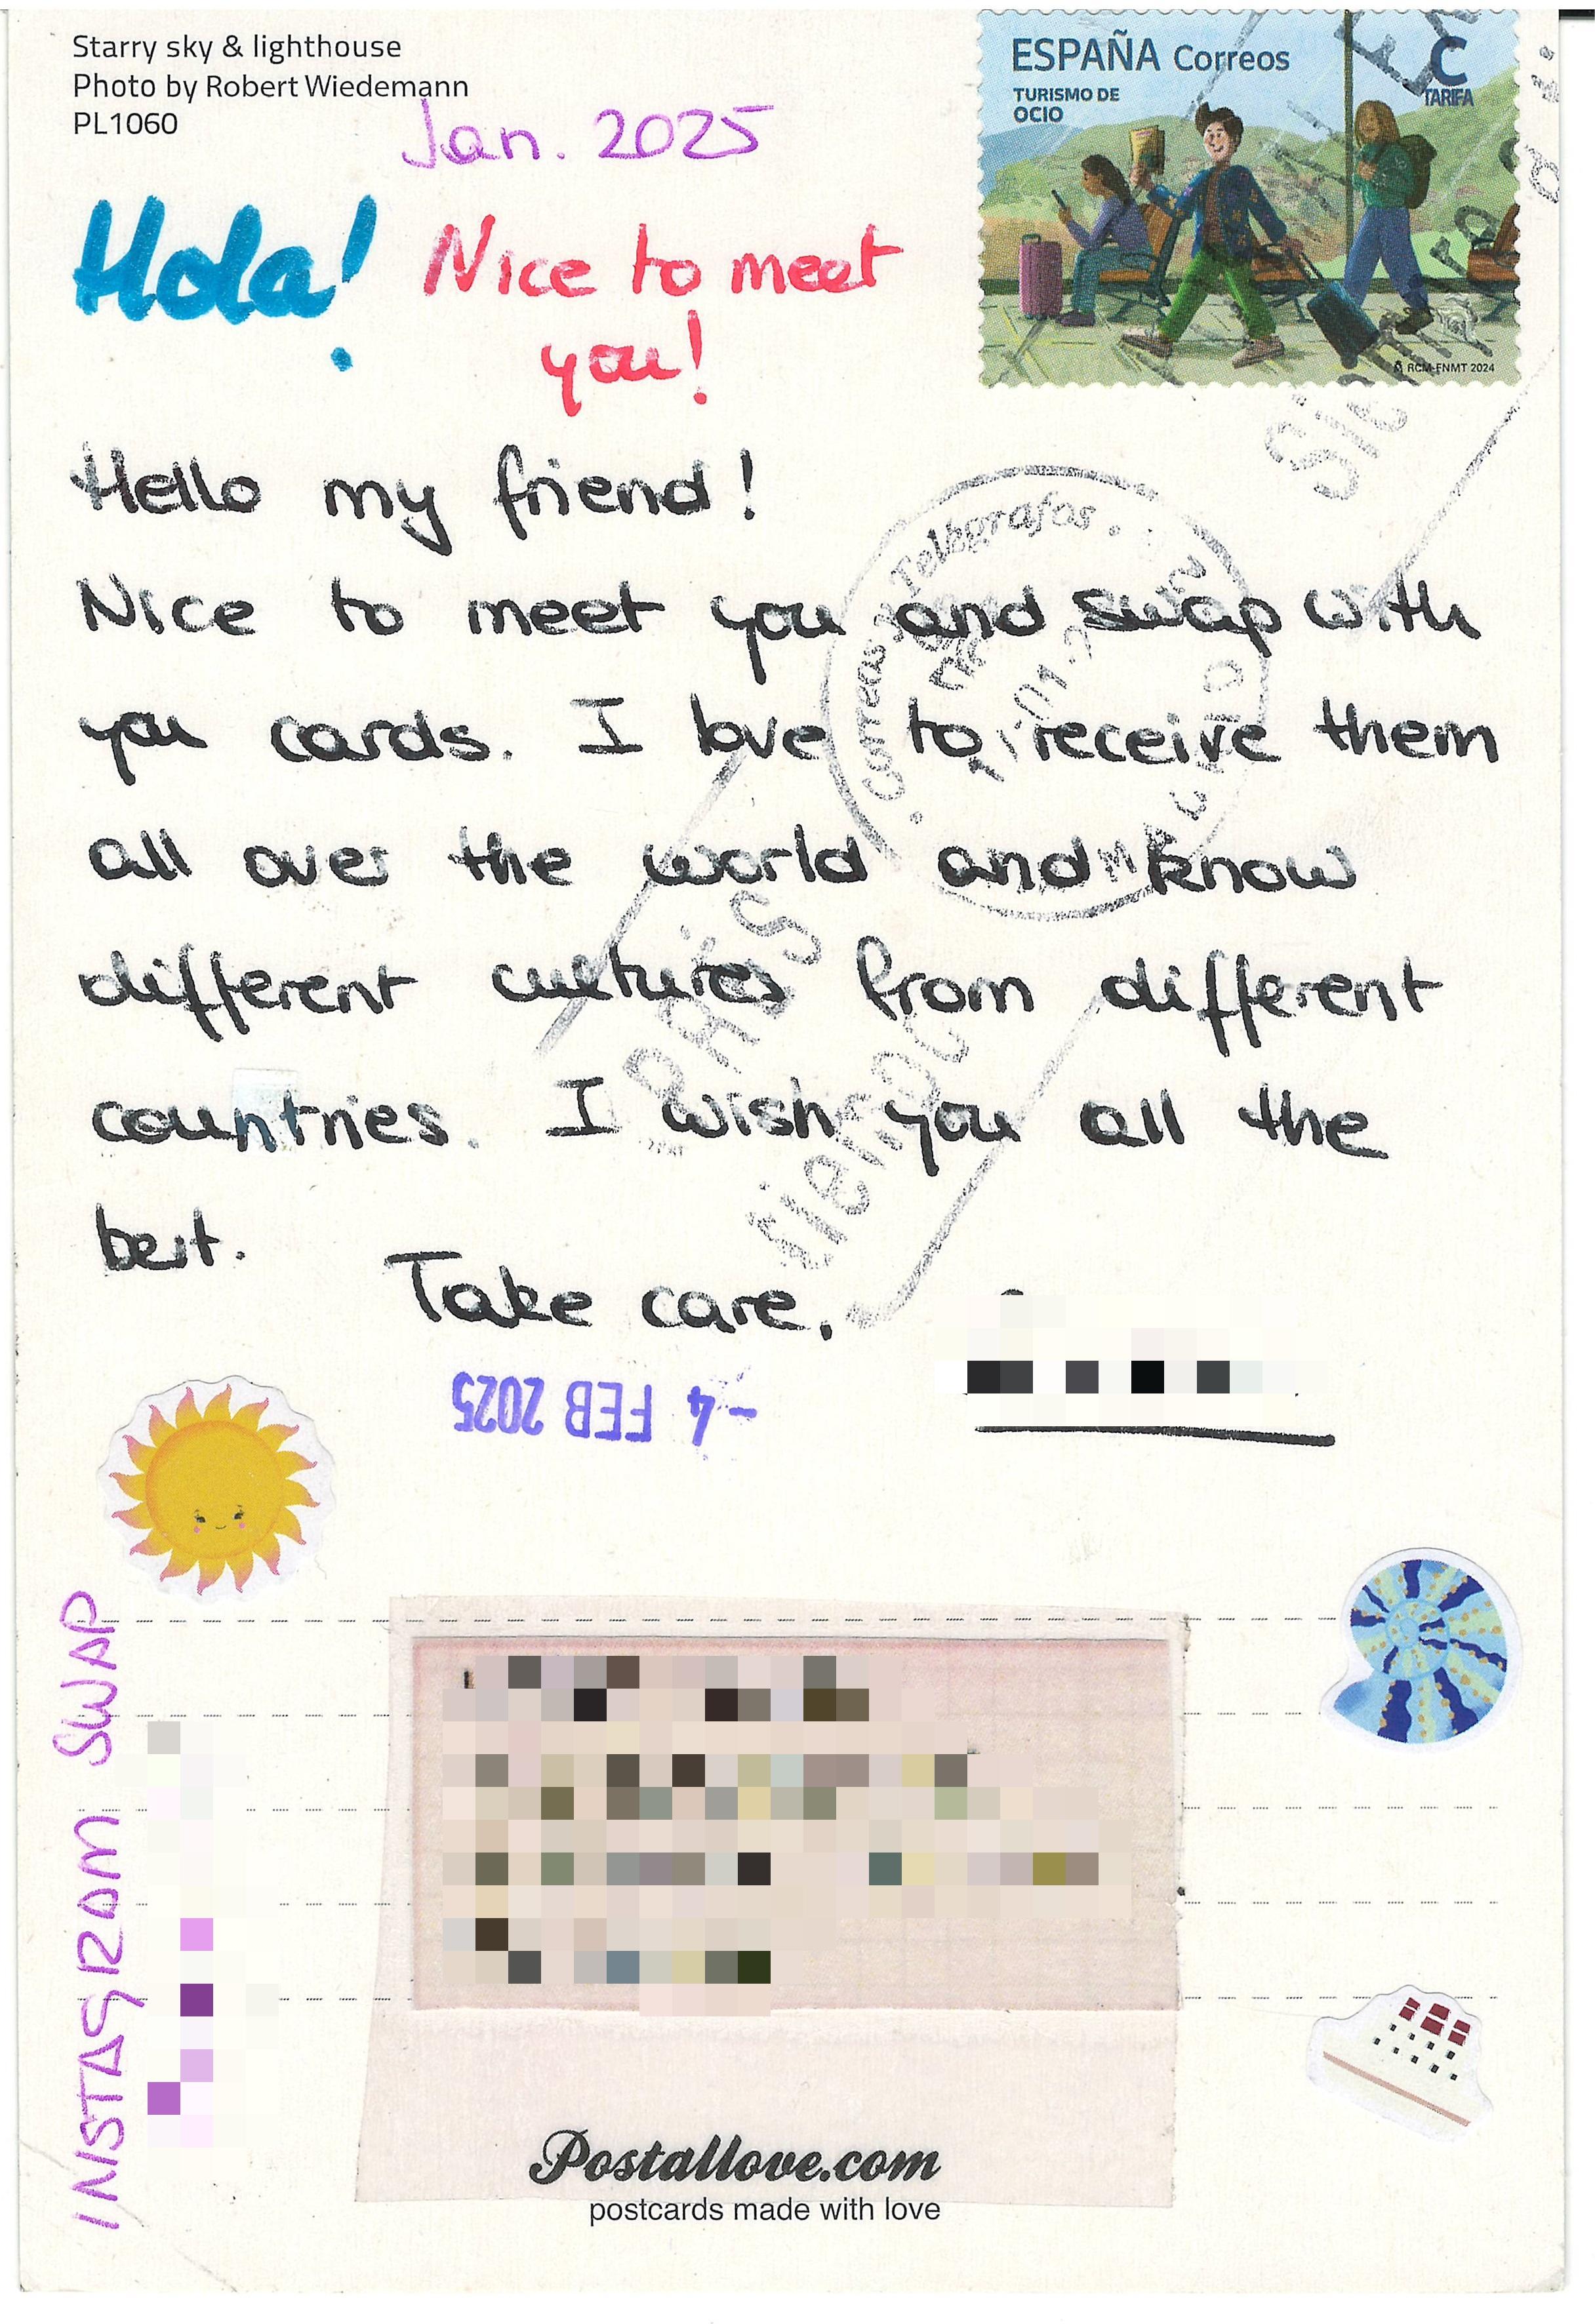 Starry sky & lighthouse
Photo by Robert Wiedemann
PL1060
Jan. 2025
ESPAÑA Correos
TURISMO DE
OCIO
C
TARIFA
RCM-FNMT 2024
Hola! Nice to meet
you!
Hello my friend!
Nice to meet you and swap with
you cards. I love to receive them
all over the world and know
different cultures from different
countries. I wish you all the
best.
Take care,
-4 FEB 2025
INSTAGRAM SWAP
Postallove.com
postcards made with love